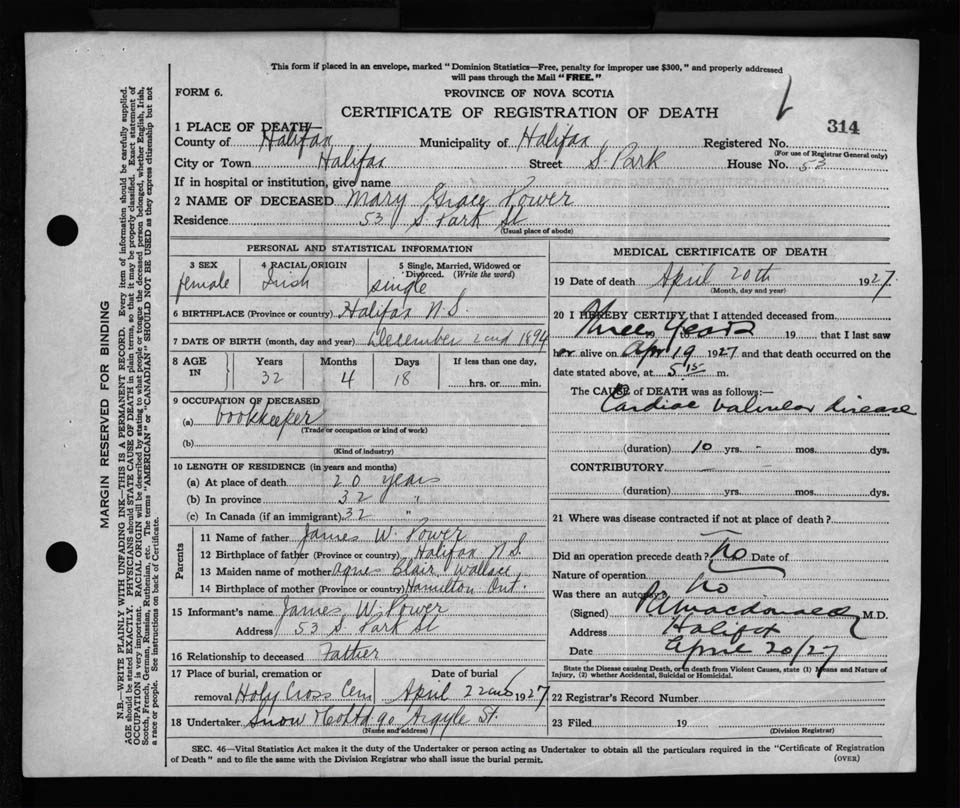 This form if placed in an envelope, marked "Dominion Statistics—Free, penalty for improper use $300," and properly addressed
will pass through the Mail "FREE."
FORM 6.
PROVINCE OF NOVA SCOTIA
CERTIFICATE OF REGISTRATION OF DEATH
314
1 PLACE OF DEATH
County of Halifax Municipality of Halifax Registered No.
(For use of Registrar General only)
City or Town Halifax Street S. Park House No. 53
If in hospital or institution, give name
2 NAME OF DECEASED Mary Grace Power
Residence 53 S. Park St
(Usual place of abode)
PERSONAL AND STATISTICAL INFORMATION
3 SEX female
4 RACIAL ORIGIN Irish
5 Single, Married, Widowed or Divorced. (Write the word) single
6 BIRTHPLACE (Province or country) Halifax N.S.
7 DATE OF BIRTH (month, day and year) December 2nd 1894
8 AGE IN Years 32 Months 4 Days 18 If less than one day, hrs. or min.
9 OCCUPATION OF DECEASED
(a) bookkeeper
(Trade or occupation or kind of work)
(b)
(Kind of industry)
10 LENGTH OF RESIDENCE (in years and months)
(a) At place of death 20 years
(b) In province 32 "
(c) In Canada (if an immigrant) 32 "
Parents
11 Name of father James W. Power
12 Birthplace of father (Province or country) Halifax N.S.
13 Maiden name of mother Agnes Blair Wallace
14 Birthplace of mother (Province or country) Hamilton Ont.
15 Informant's name James W. Power
Address 53 S. Park St
16 Relationship to deceased Father
17 Place of burial, cremation or removal Holy Cross Cem
Date of burial April 22nd 1927
18 Undertaker Snow & Co Ltd 90 Argyle St.
(Name and address)
MEDICAL CERTIFICATE OF DEATH
19 Date of death April 20th 1927
(Month, day and year)
20 I HEREBY CERTIFY that I attended deceased from
Three Years 19 that I last saw
her alive on Apr 19 1927 and that death occurred on the
date stated above, at 5 15 m.
The CAUSE of DEATH was as follows:
Cardiac valvular disease
(duration) 10 yrs. - mos. dys.
CONTRIBUTORY — —
(duration) yrs. mos. dys.
21 Where was disease contracted if not at place of death?
—
Did an operation precede death? No Date of
Nature of operation
Was there an autopsy? No
(Signed) Macdonald M.D.
Address Halifax
Date April 20/27
State the Disease causing Death, or in death from Violent Causes, state (1) Means and Nature of
Injury, (2) whether Accidental, Suicidal or Homicidal.
22 Registrar's Record Number
23 Filed 19
(Division Registrar)
SEC. 46—Vital Statistics Act makes it the duty of the Undertaker or person acting as Undertaker to obtain all the particulars required in the "Certificate of Registration
of Death" and to file the same with the Division Registrar who shall issue the burial permit. (OVER)
MARGIN RESERVED FOR BINDING
N.B.—WRITE PLAINLY WITH UNFADING INK—THIS IS A PERMANENT RECORD. Every item of information should be carefully supplied.
AGE should be stated EXACTLY. PHYSICIANS should STATE CAUSE OF DEATH in plain terms, so that it may be properly classified. Exact statement of
OCCUPATION is very important. RACIAL ORIGIN will be described by stating to what people or tongue the deceased person belonged, whether English, Irish,
Scotch, French, German, Russian, Ruthenian, etc. The terms "AMERICAN" or "CANADIAN" SHOULD NOT BE USED as they express citizenship but not
a race or people. See instructions on back of Certificate.